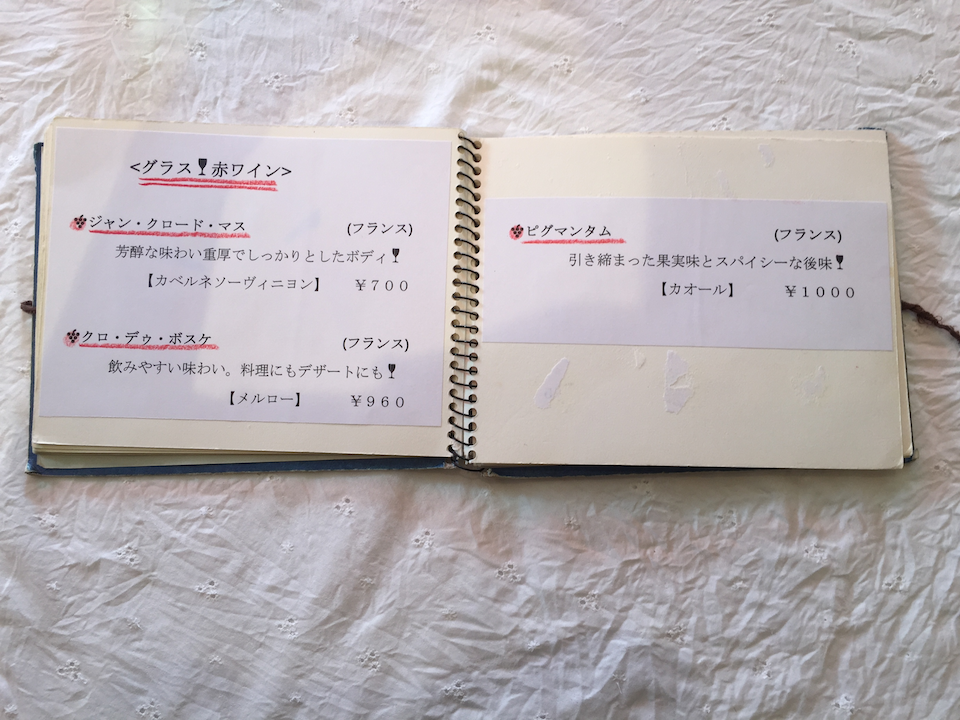 <グラス🍷赤ワイン>
ジャン・クロード・マス (フランス)
芳醇な味わい重厚でしっかりとしたボディ🍷
【カベルネソーヴィニヨン】 ￥７００
クロ・デゥ・ボスケ (フランス)
飲みやすい味わい。料理にもデザートにも🍷
【メルロー】 ￥９６０
ピグマンタム (フランス)
引き締まった果実味とスパイシーな後味🍷
【カオール】 ￥１０００